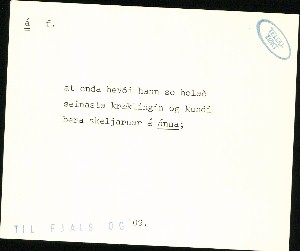 á f.
at enda hevði hann so holað
seinasta kræklingin og kundi
bera skeljarnar á ánna;
TIL FJALS OG '09.